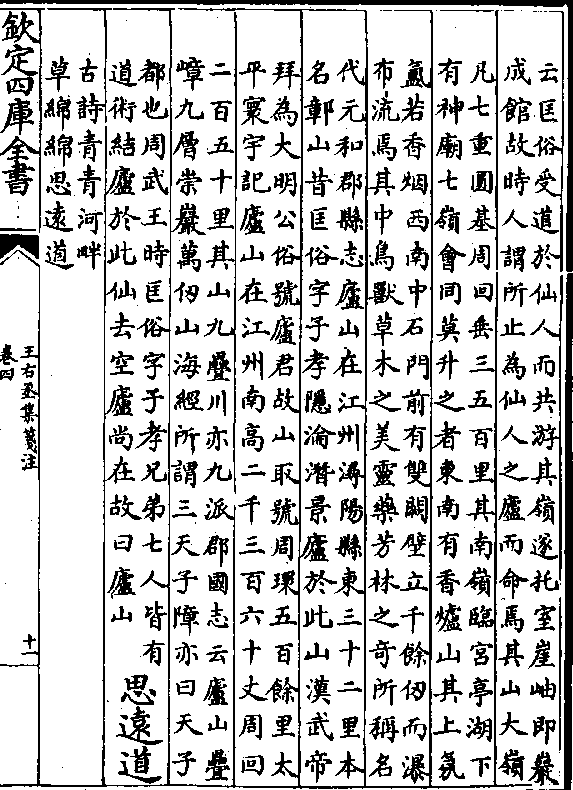 云匡俗受道於仙人而共游其嶺遂托室崖岫即巖
成館故時人謂所止為仙人之廬而命焉其山大嶺
凡七重圓基周回垂三五百里其南嶺臨宮亭湖下
有神廟七嶺會同莫升之者東南有香爐山其上氛
氳若香烟西南中石門前有雙闕壁立千餘仞而瀑
布流焉其中鳥獸草木之美靈藥芳林之奇所稱名
代元和郡縣志廬山在江州潯陽縣東三十二里本
名鄣山昔匡俗字子孝隱淪潛景廬於此山漢武帝
拜為大明公俗號廬君故山取號周環五百餘里太
平寰宇記廬山在江州南高二千三百六十丈周回
二百五十里其山九疊川亦九派郡國志云廬山疊
嶂九層崇巖萬仞山海經所謂三天子障亦曰天子
都也周武王時匡俗字子孝兄弟七人皆有
道術結廬於此仙去空廬尚在故曰廬山
思遠道
古詩青青河畔
草綿綿思遠道
欽定四庫全書
王右丞集箋注
卷四
十一